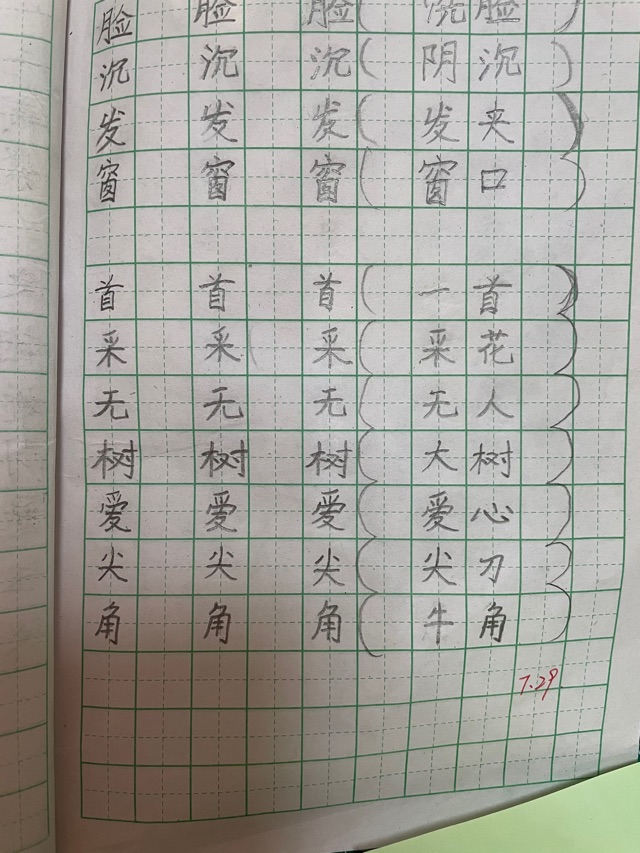 脸 脸 脸 ( 洗脸 )
沉 沉 沉 ( 阴沉 )
发 发 发 ( 发夹 )
窗 窗 窗 ( 窗口 )
首 首 首 ( 一首 )
采 采 采 ( 采花 )
无 无 无 ( 无人 )
树 树 树 ( 大树 )
爱 爱 爱 ( 爱心 )
尖 尖 尖 ( 尖刀 )
角 角 角 ( 牛角 )
7.29